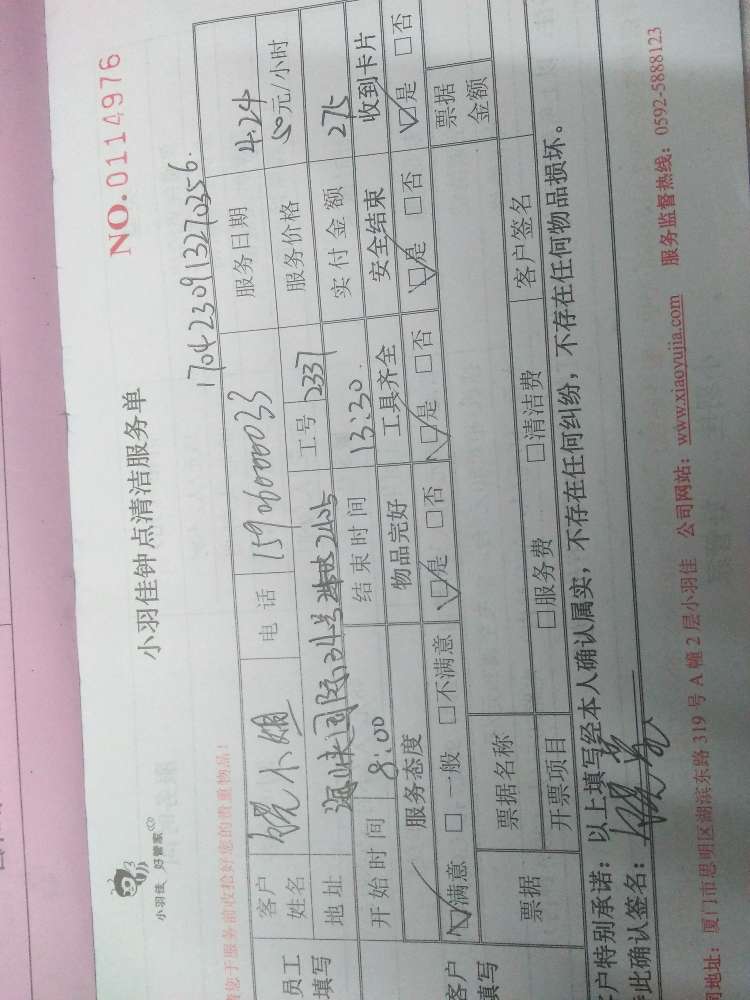 小羽佳 好管家
小羽佳钟点清洁服务单
NO.0114976
请您于服务前收拾好您的贵重物品!
1704230913270356.
员工填写 客户姓名 小姐 电话 15906000033 服务日期 4.24
地址 海峡国际 2405 工号 2337 服务价格 50元/小时
开始时间 8:00 结束时间 13:30 实付金额 275
客户填写 服务态度 物品完好 工具齐全 安全结束 收到卡片
☑满意 □一般 □不满意 ☑是 □否 ☑是 □否 ☑是 □否 ☑是 □否
票据 票据名称 票据金额
开票项目 □服务费 □清洁费 客户签名
客户特别承诺：以上填写经本人确认属实，不存在任何纠纷，不存在任何物品损坏。
此确认签名：
地址：厦门市思明区湖滨东路 319 号 A 幢 2 层小羽佳 公司网站：www.xiaoyujia.com 服务监督热线：0592-5888123